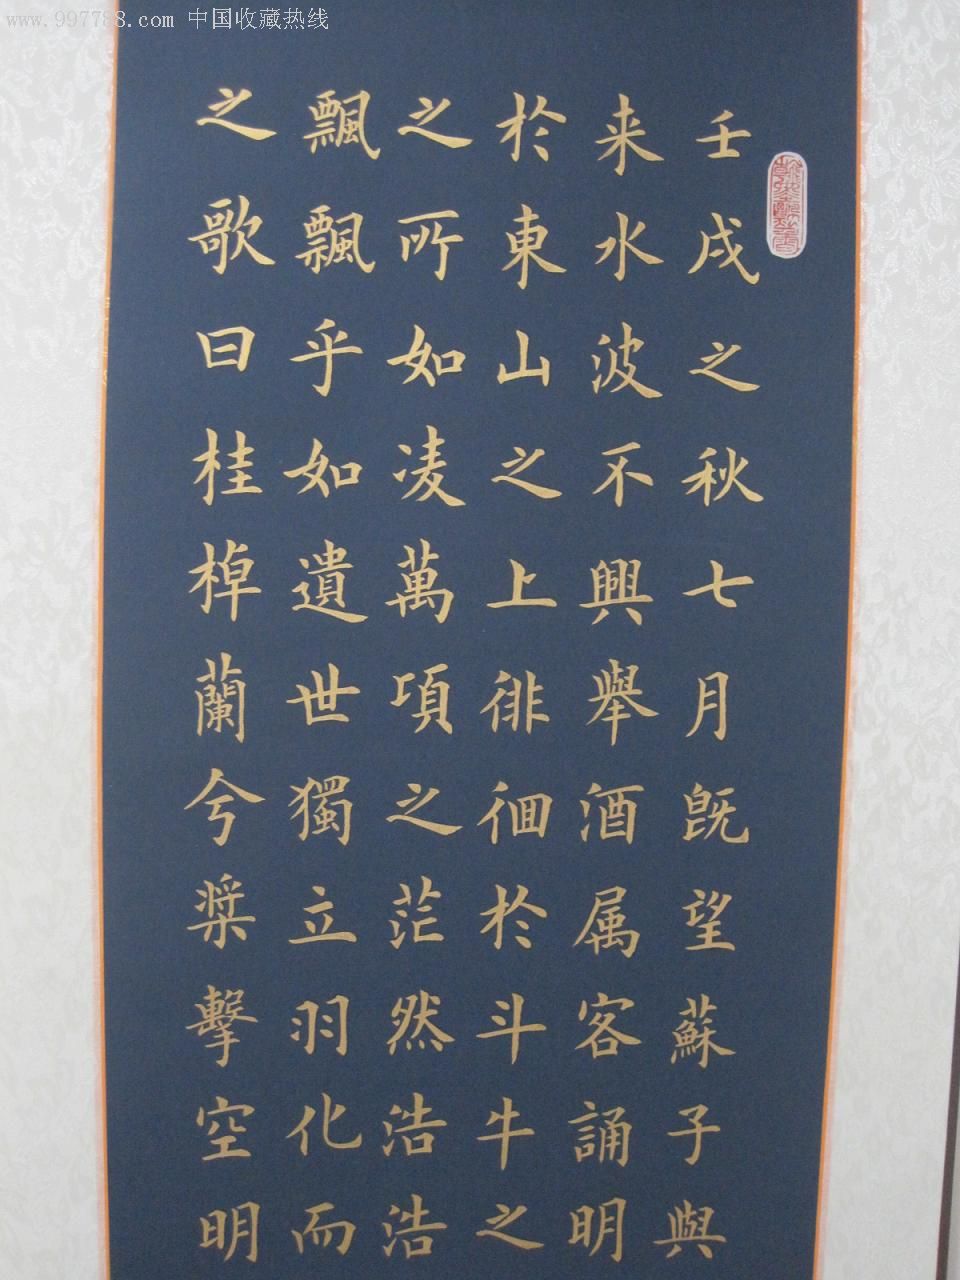 www.997788.com 中国收藏热线
壬戌之秋七月既望蘇子與
来水波不興舉酒属客誦明
於東山之上徘徊於斗牛之
之所如凌萬項之茫然浩浩
飄飄乎如遺世獨立羽化而
之歌曰桂棹蘭兮槳擊空明